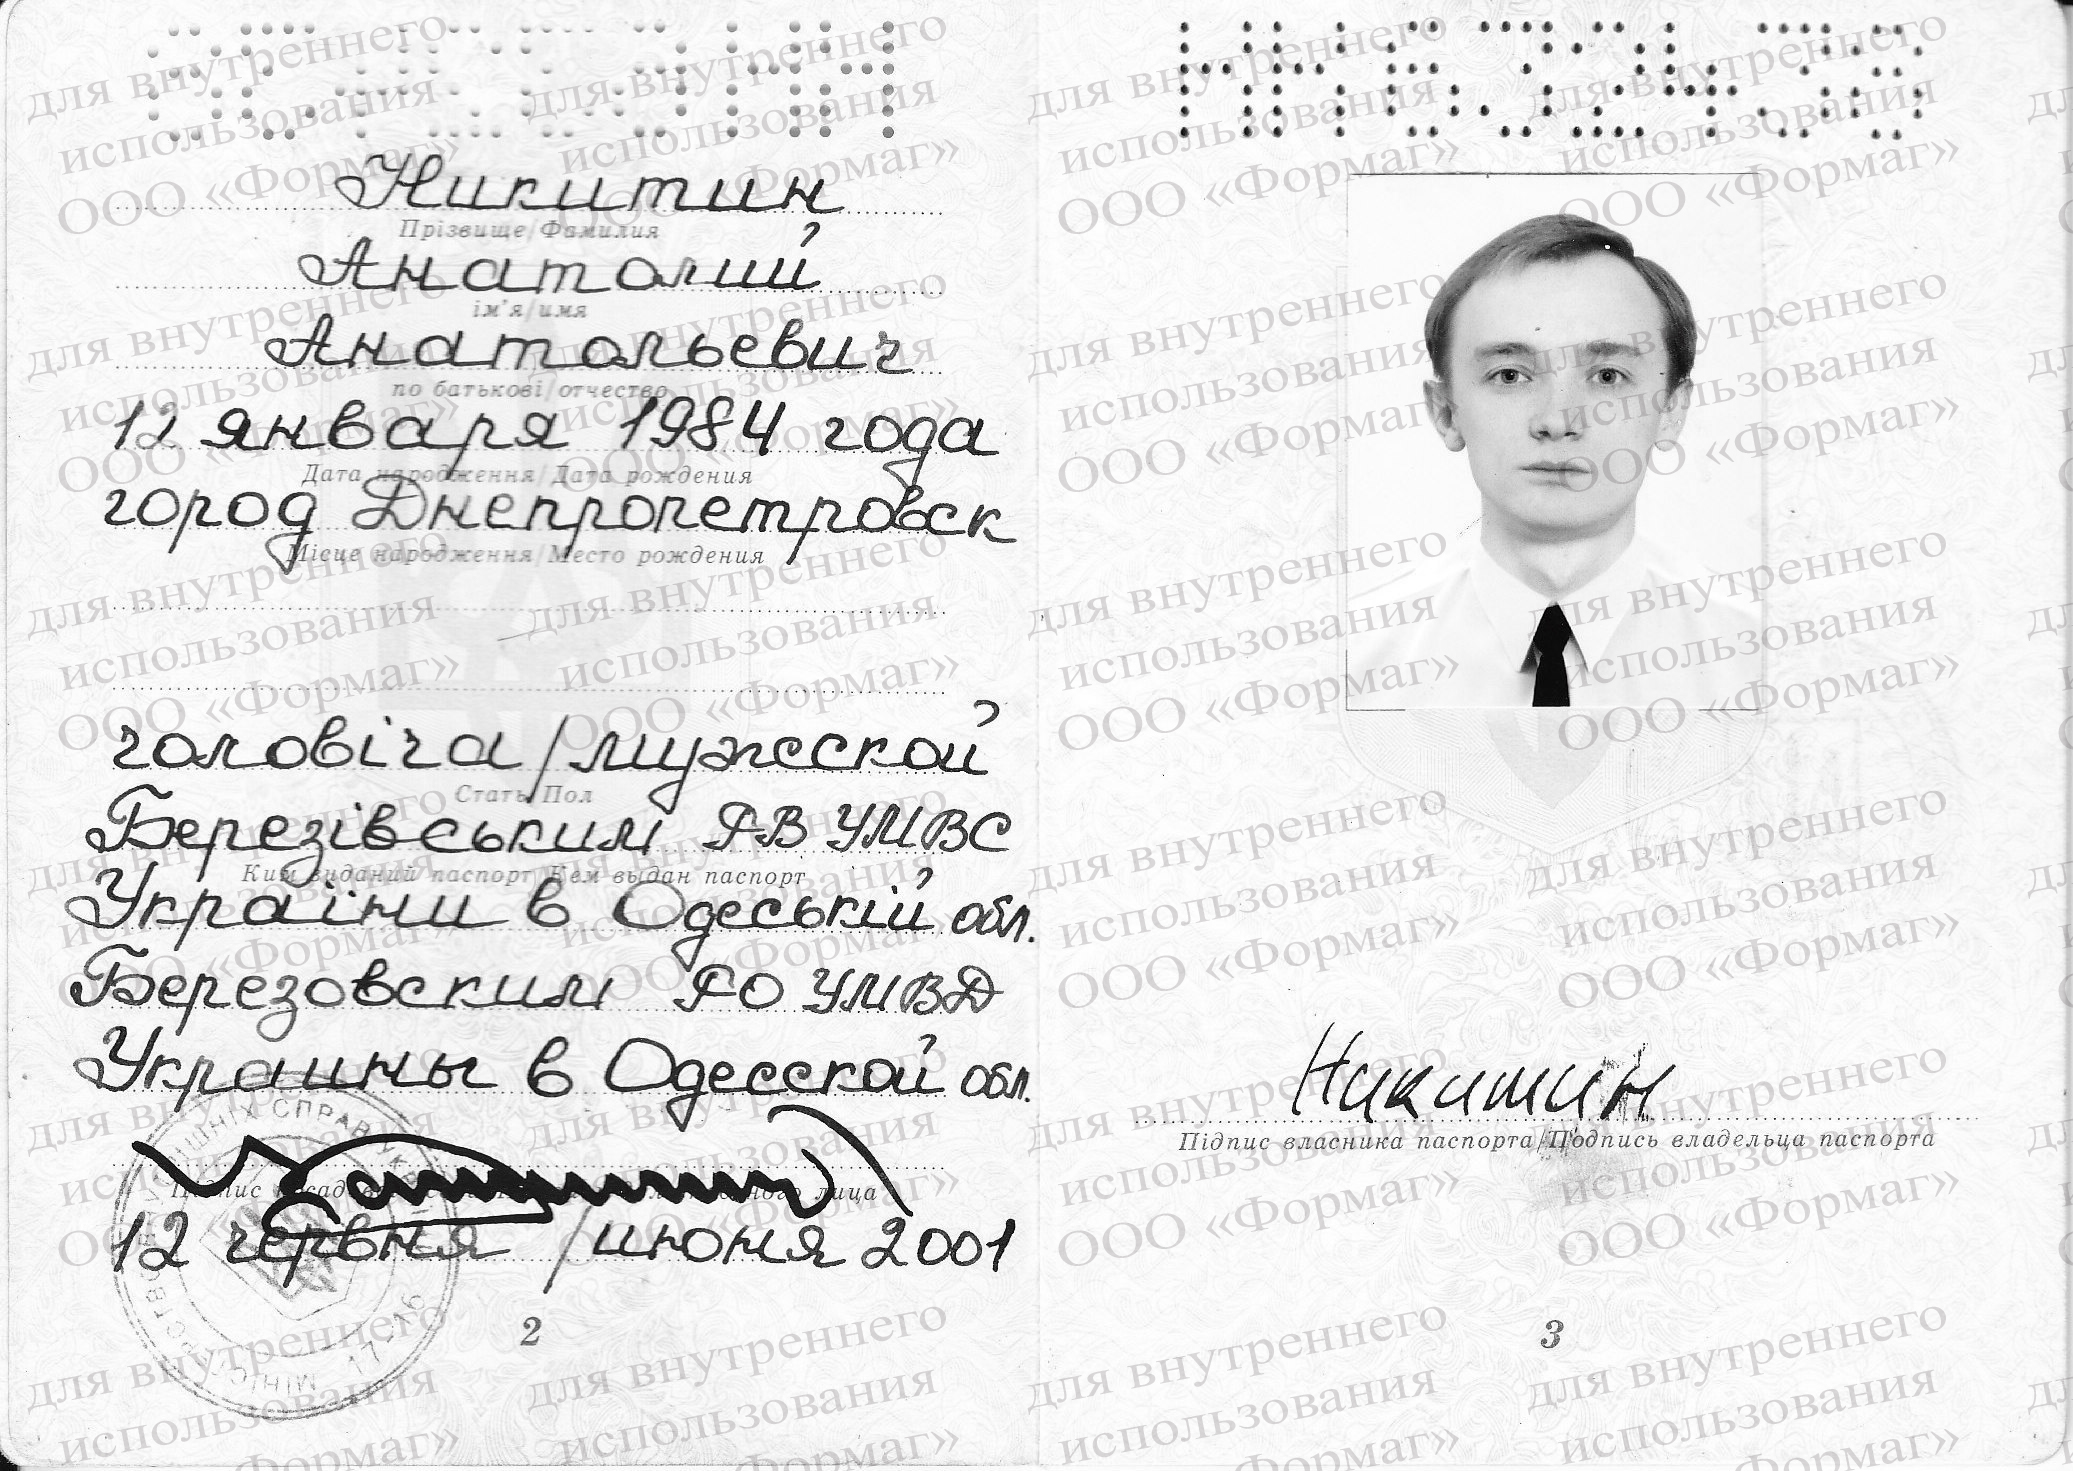 Никитин
Прізвище/Фамилия
Анатолий
ім'я/имя
Анатольевич
по батькові/отчество
12 января 1984 года
Дата народження/Дата рождения
город Днепропетровск
Місце народження/Место рождения
чоловіча/мужской
Стать/Пол
Березівським РВ УМВС
Ким виданий паспорт/Кем выдан паспорт
України в Одеській обл.
Березовским РО УМВД
Украины в Одесской обл.
Підпис лица
12 червня/июня 2001
2
Підпис власника паспорта/Подпись владельца паспорта
Никитин
3
для внутреннего
использования
ООО «Формаг»